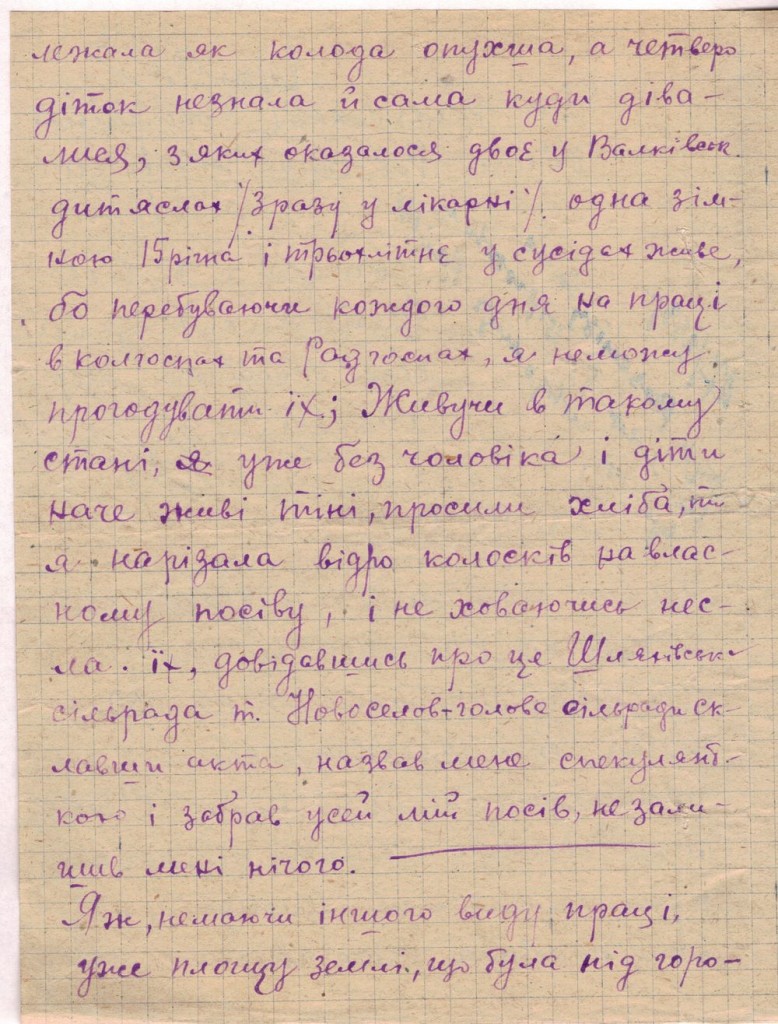 лежала як колода опухша, а четверо
діток незнала й сама куди діва-
лися, з яких оказалося двоє у Валківськ.
дитяслах /зразу у лікарні/. одна зім-
ною 15 річна і трьохлітнє у сусідах живе,
бо перебуваючи кождого дня на праці
в колгоспах та Радгоспах, я неможу
прогодувати їх; Живучи в такому
стані, я уже без чоловіка і діти
наче живі тіні, просили хліба, т
я нарізала відро колосків на влас-
ному посіву, і не ховаючись нес-
ла їх, довідавшись про це Шляхівськ
сільрада т. Новоселов - голова сільради ск-
лавши акта, назвав мене спекулянт-
кою і забрав усей мій посів, незали-
шив мені нічого.
Яж, немаючи іншого виду праці,
уже площу землі, що була під горо-